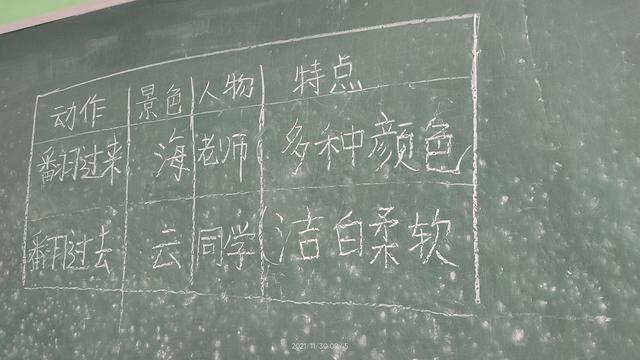 动作 景色 人物 特点
翻过来 海 老师 多种颜色
翻过去 云 同学 洁白柔软
2021/11/30 09:45